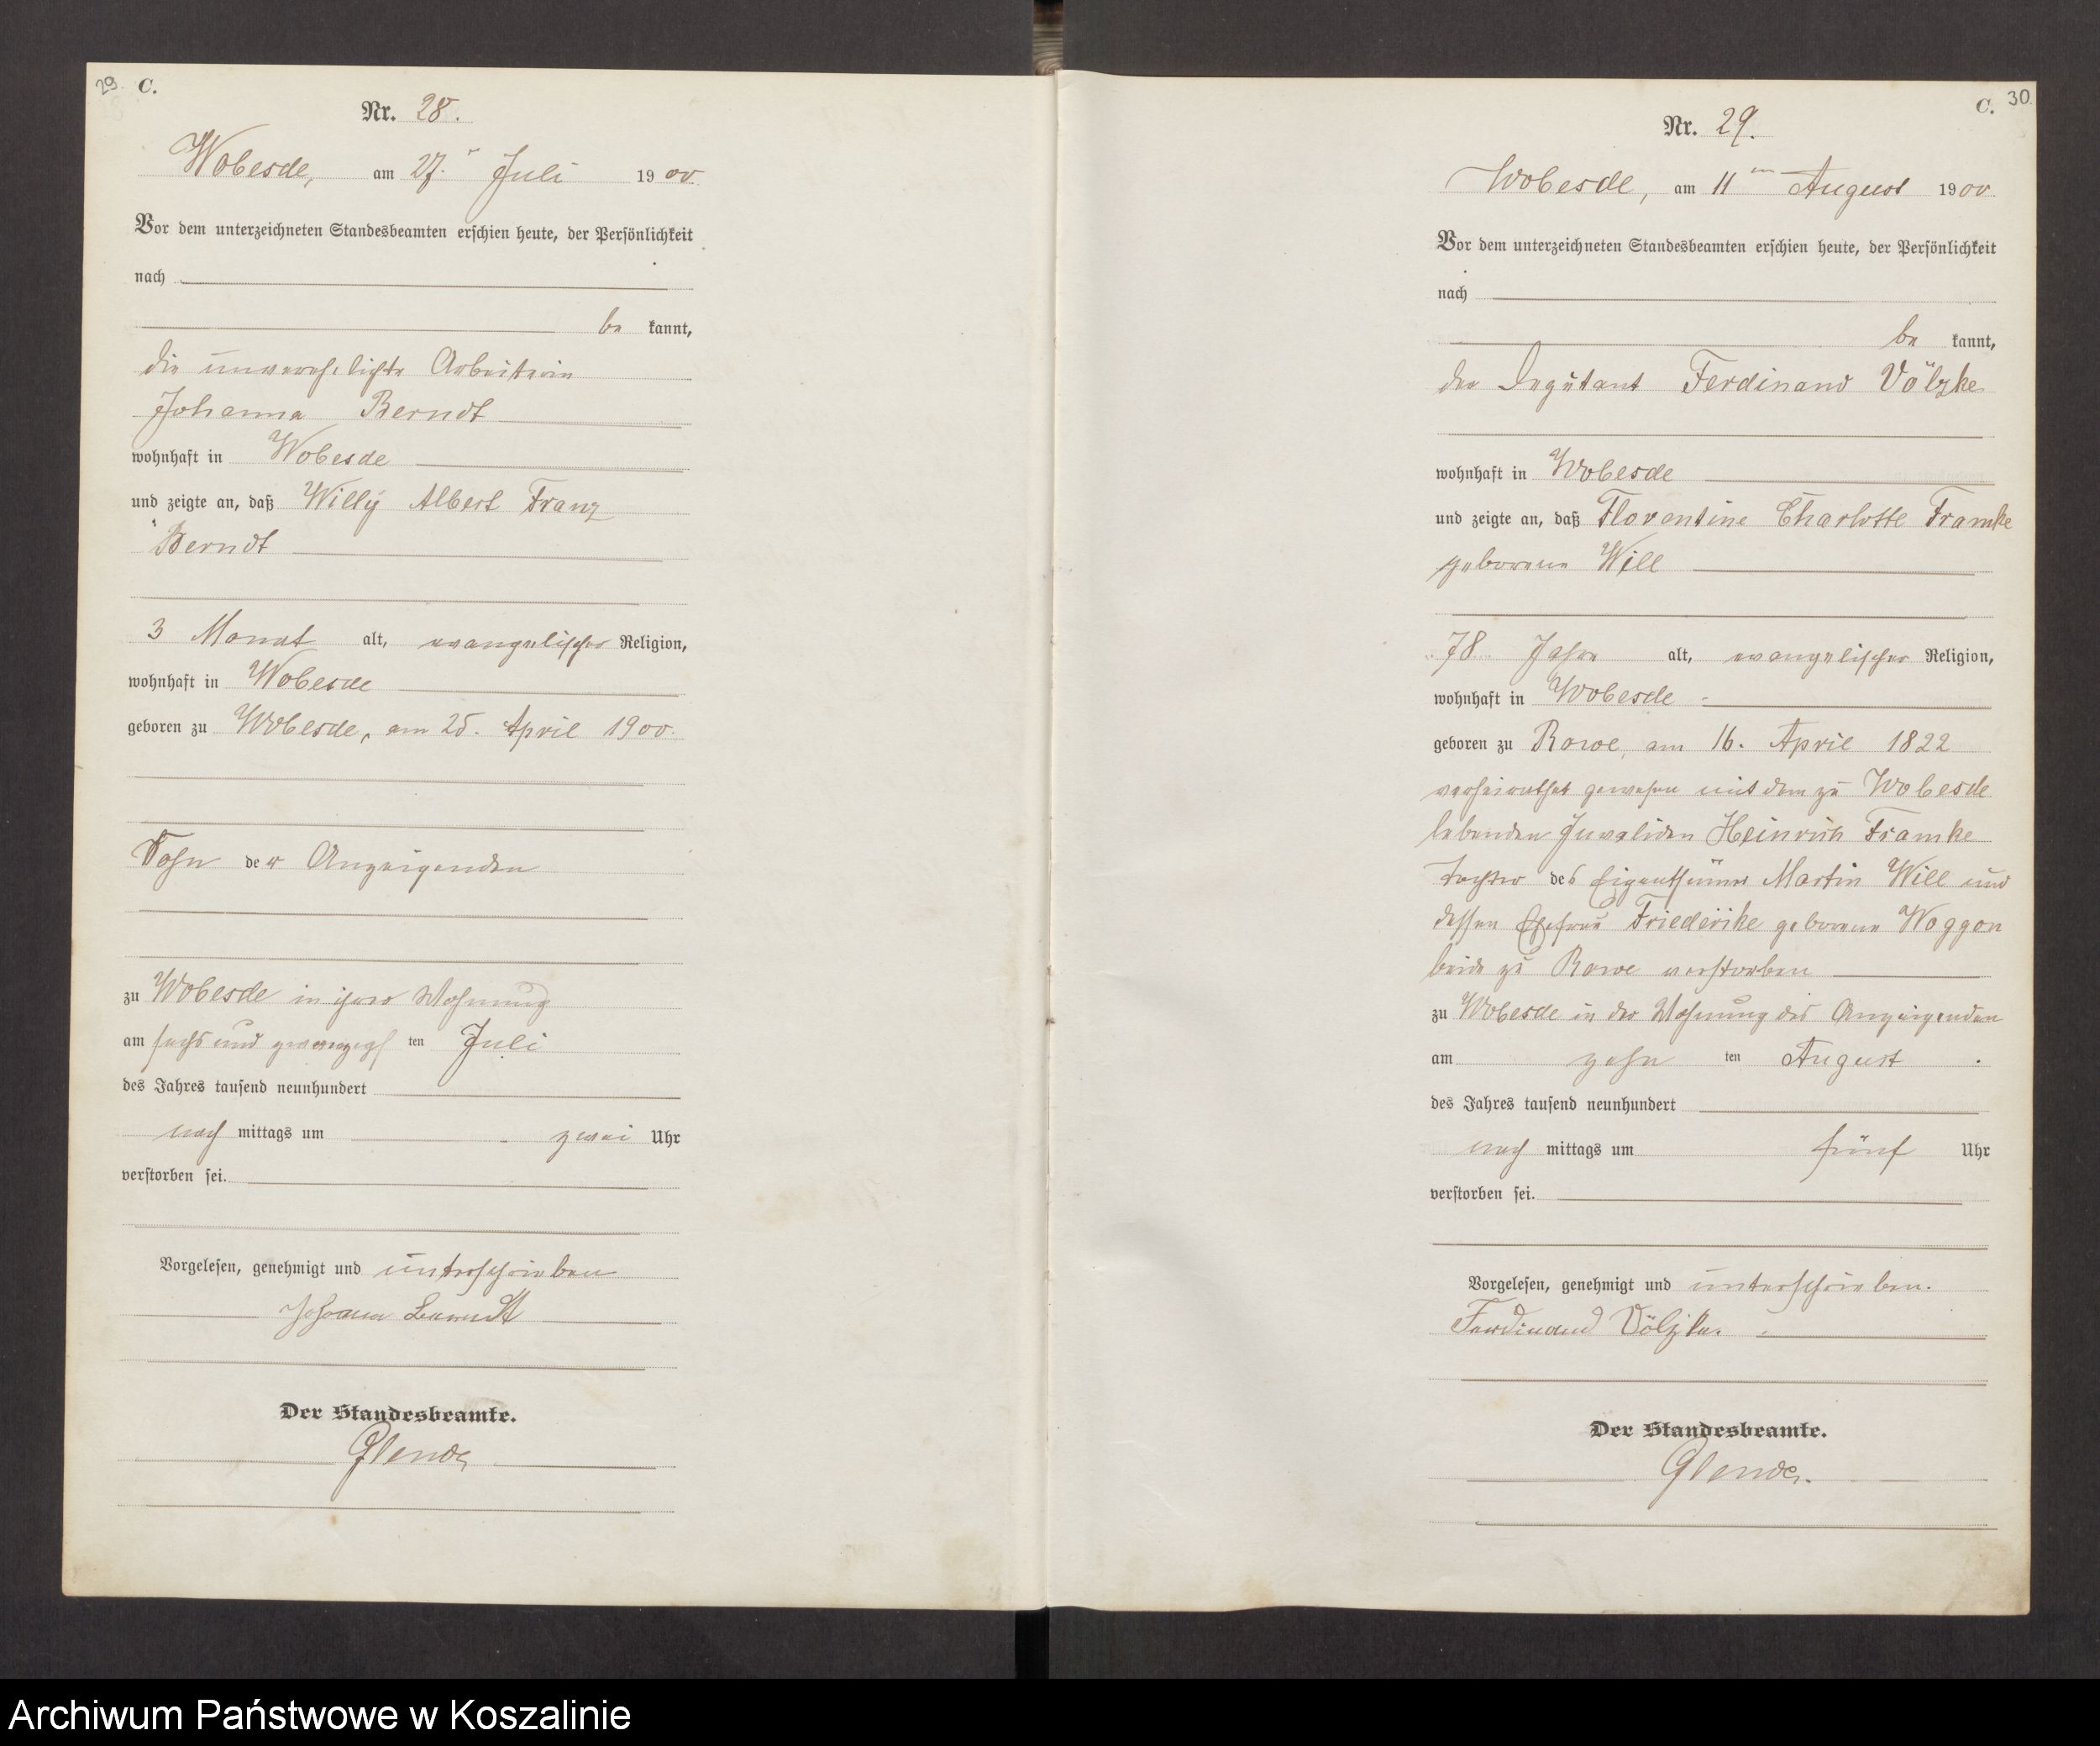 29. C.
Nr. 28.
Wobesde, am 27. Juli 1900
Vor dem unterzeichneten Standesbeamten erschien heute, der Persönlichkeit
nach
be kannt,
die unverehelichte Arbeiterin
Johanna Berndt
wohnhaft in Wobesde
und zeigte an, daß Willy Albert Franz
Berndt
3 Monat alt, evangelischer Religion,
wohnhaft in Wobesde
geboren zu Wobesde, am 25. April 1900.
Sohn der Anzeigenden
zu Wobesde in ihrer Wohnung
am sechs und zwanzigsten Juli
des Jahres tausend neunhundert
nach mittags um zwei Uhr
verstorben sei.
Vorgelesen, genehmigt und unterschrieben
Johanna Berndt
Der Standesbeamte.
C. 30.
Nr. 29.
Wobesde, am 11ten August 1900
Vor dem unterzeichneten Standesbeamten erschien heute, der Persönlichkeit
nach
be kannt,
der Ferdinand Völzke
wohnhaft in Wobesde
und zeigte an, daß Florentine Charlotte Framke
geborene Will
78 Jahre alt, evangelischer Religion,
wohnhaft in Wobesde
geboren zu Rowe, am 16. April 1822
verheirathet gewesen mit dem zu Wobesde
lebenden Invaliden Heinrich Framke
Tochter des Eigenthümer Martin Will und
dessen Ehefrau Friederike geborene Woggon
beide zu Rowe verstorben
zu Wobesde in der Wohnung des Anzeigenden
am zehn ten August
des Jahres tausend neunhundert
nach mittags um fünf Uhr
verstorben sei.
Vorgelesen, genehmigt und unterschrieben.
Ferdinand Völzke.
Der Standesbeamte.
Archiwum Państwowe w Koszalinie